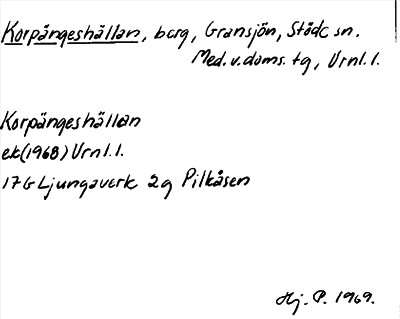 Korpängeshällan, berg, Gransjön, Stöde sn.
Med. v. doms. tg, Vrnl. l.
Korpängeshällan
ek (1968) Vrnl. l.
17G Ljungaverk 2g Pilkåsen
Hj. P. 1969.